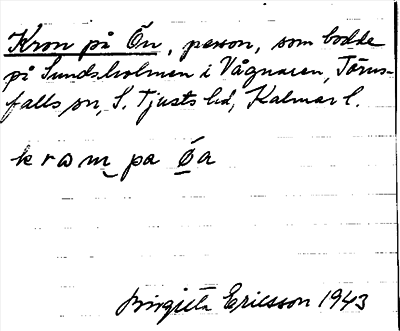 Kron på Ön, person, som bodde
på Sundsholmen i Vågnaren, Törns-
falls sn, S. Tjusts hd, Kalmar l.
kron på Öa
Birgitta Ericsson 1943